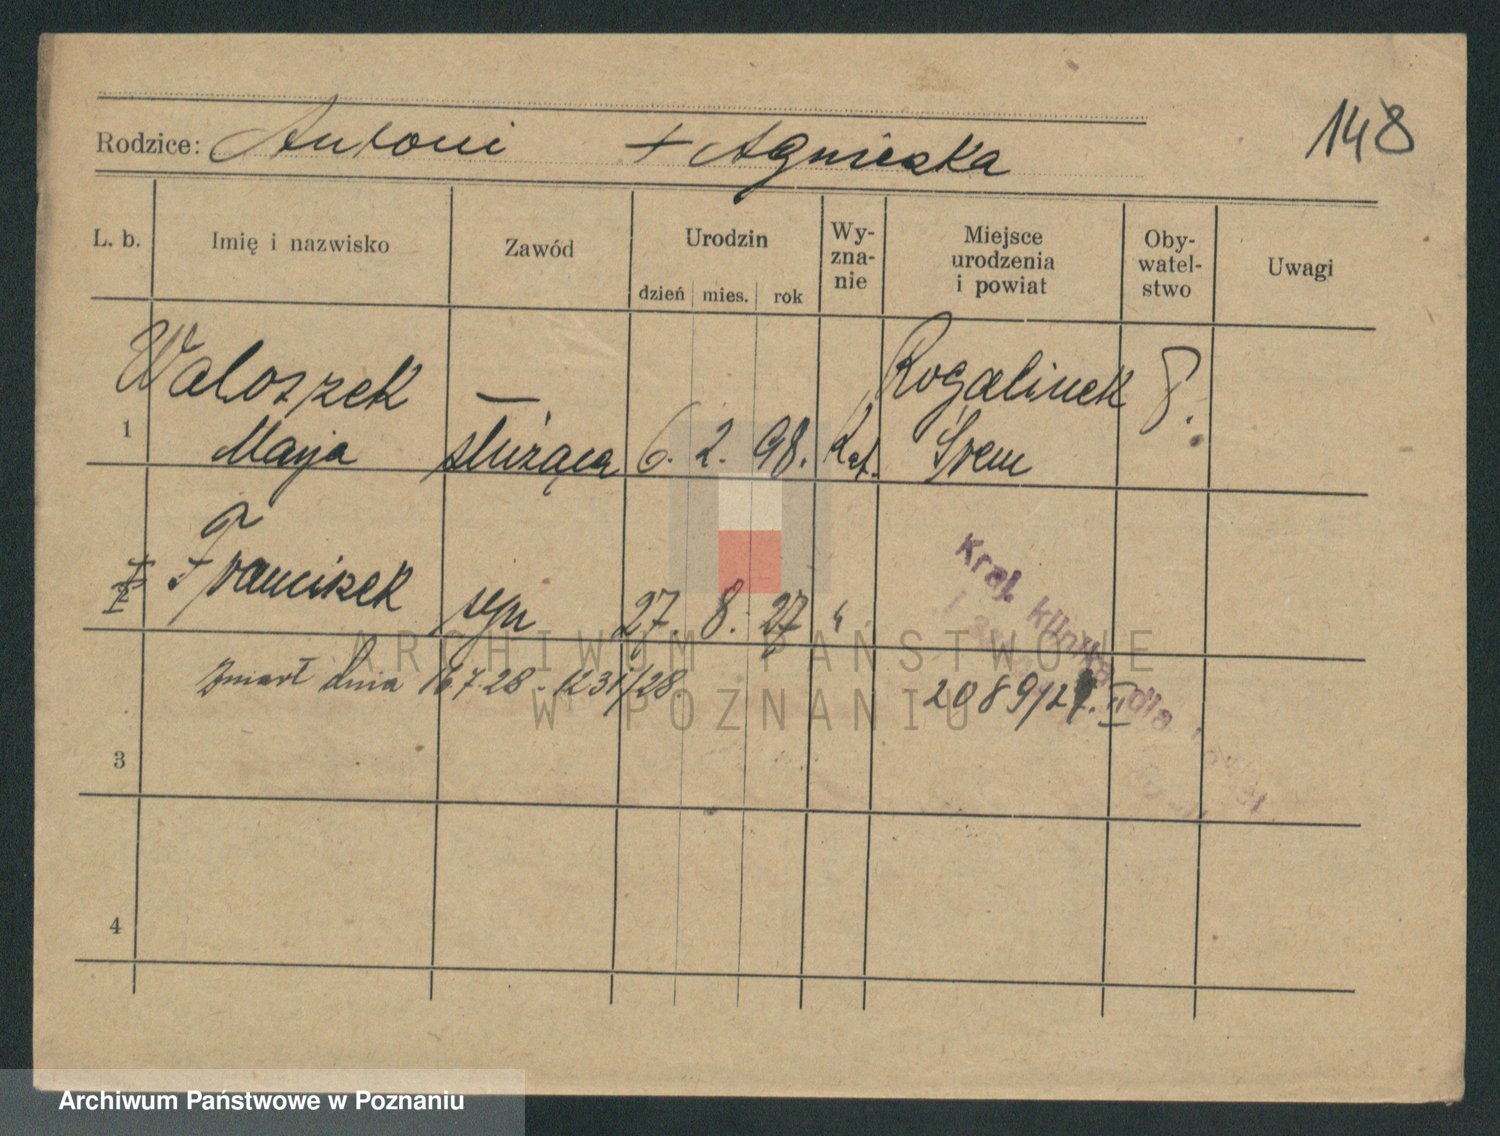 148
Rodzice: Antoni + Agnieszka
L. b.
Imię i nazwisko
Zawód
Urodzin
dzień mies. rok
Wy-
zna-
nie
Miejsce
urodzenia
i powiat
Oby-
watel-
stwo
Uwagi
Waloszek
Rogalinek
1 Marja służąca 6. 2. 98. Kat. Śrem
2 Franciszek syn 27. 8. 27 "
Kraj. klinika dla
zmarł dnia 16 7 28 - 1231/28
2089/27. II
3
4
ARCHIWUM PAŃSTWOWE
W POZNANIU
Archiwum Państwowe w Poznaniu